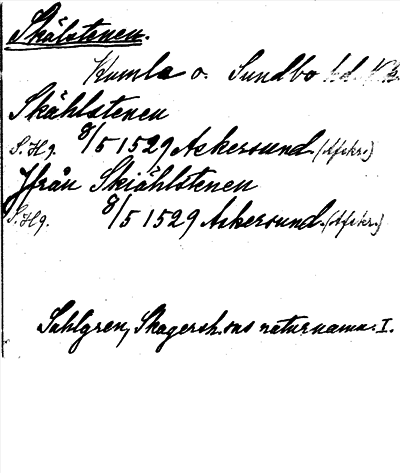 Skålstenen.
Kumla o. Sundbo hd
Skåhlstenen
S.H.g. 8/5 1529 Askersund. (Afskr.)
Jfrån Skiåhlstenen
S.H.g. 8/5 1529 Askersund. (Afskr.)
Sahlgren, Skagersh.sns naturnamn. I.